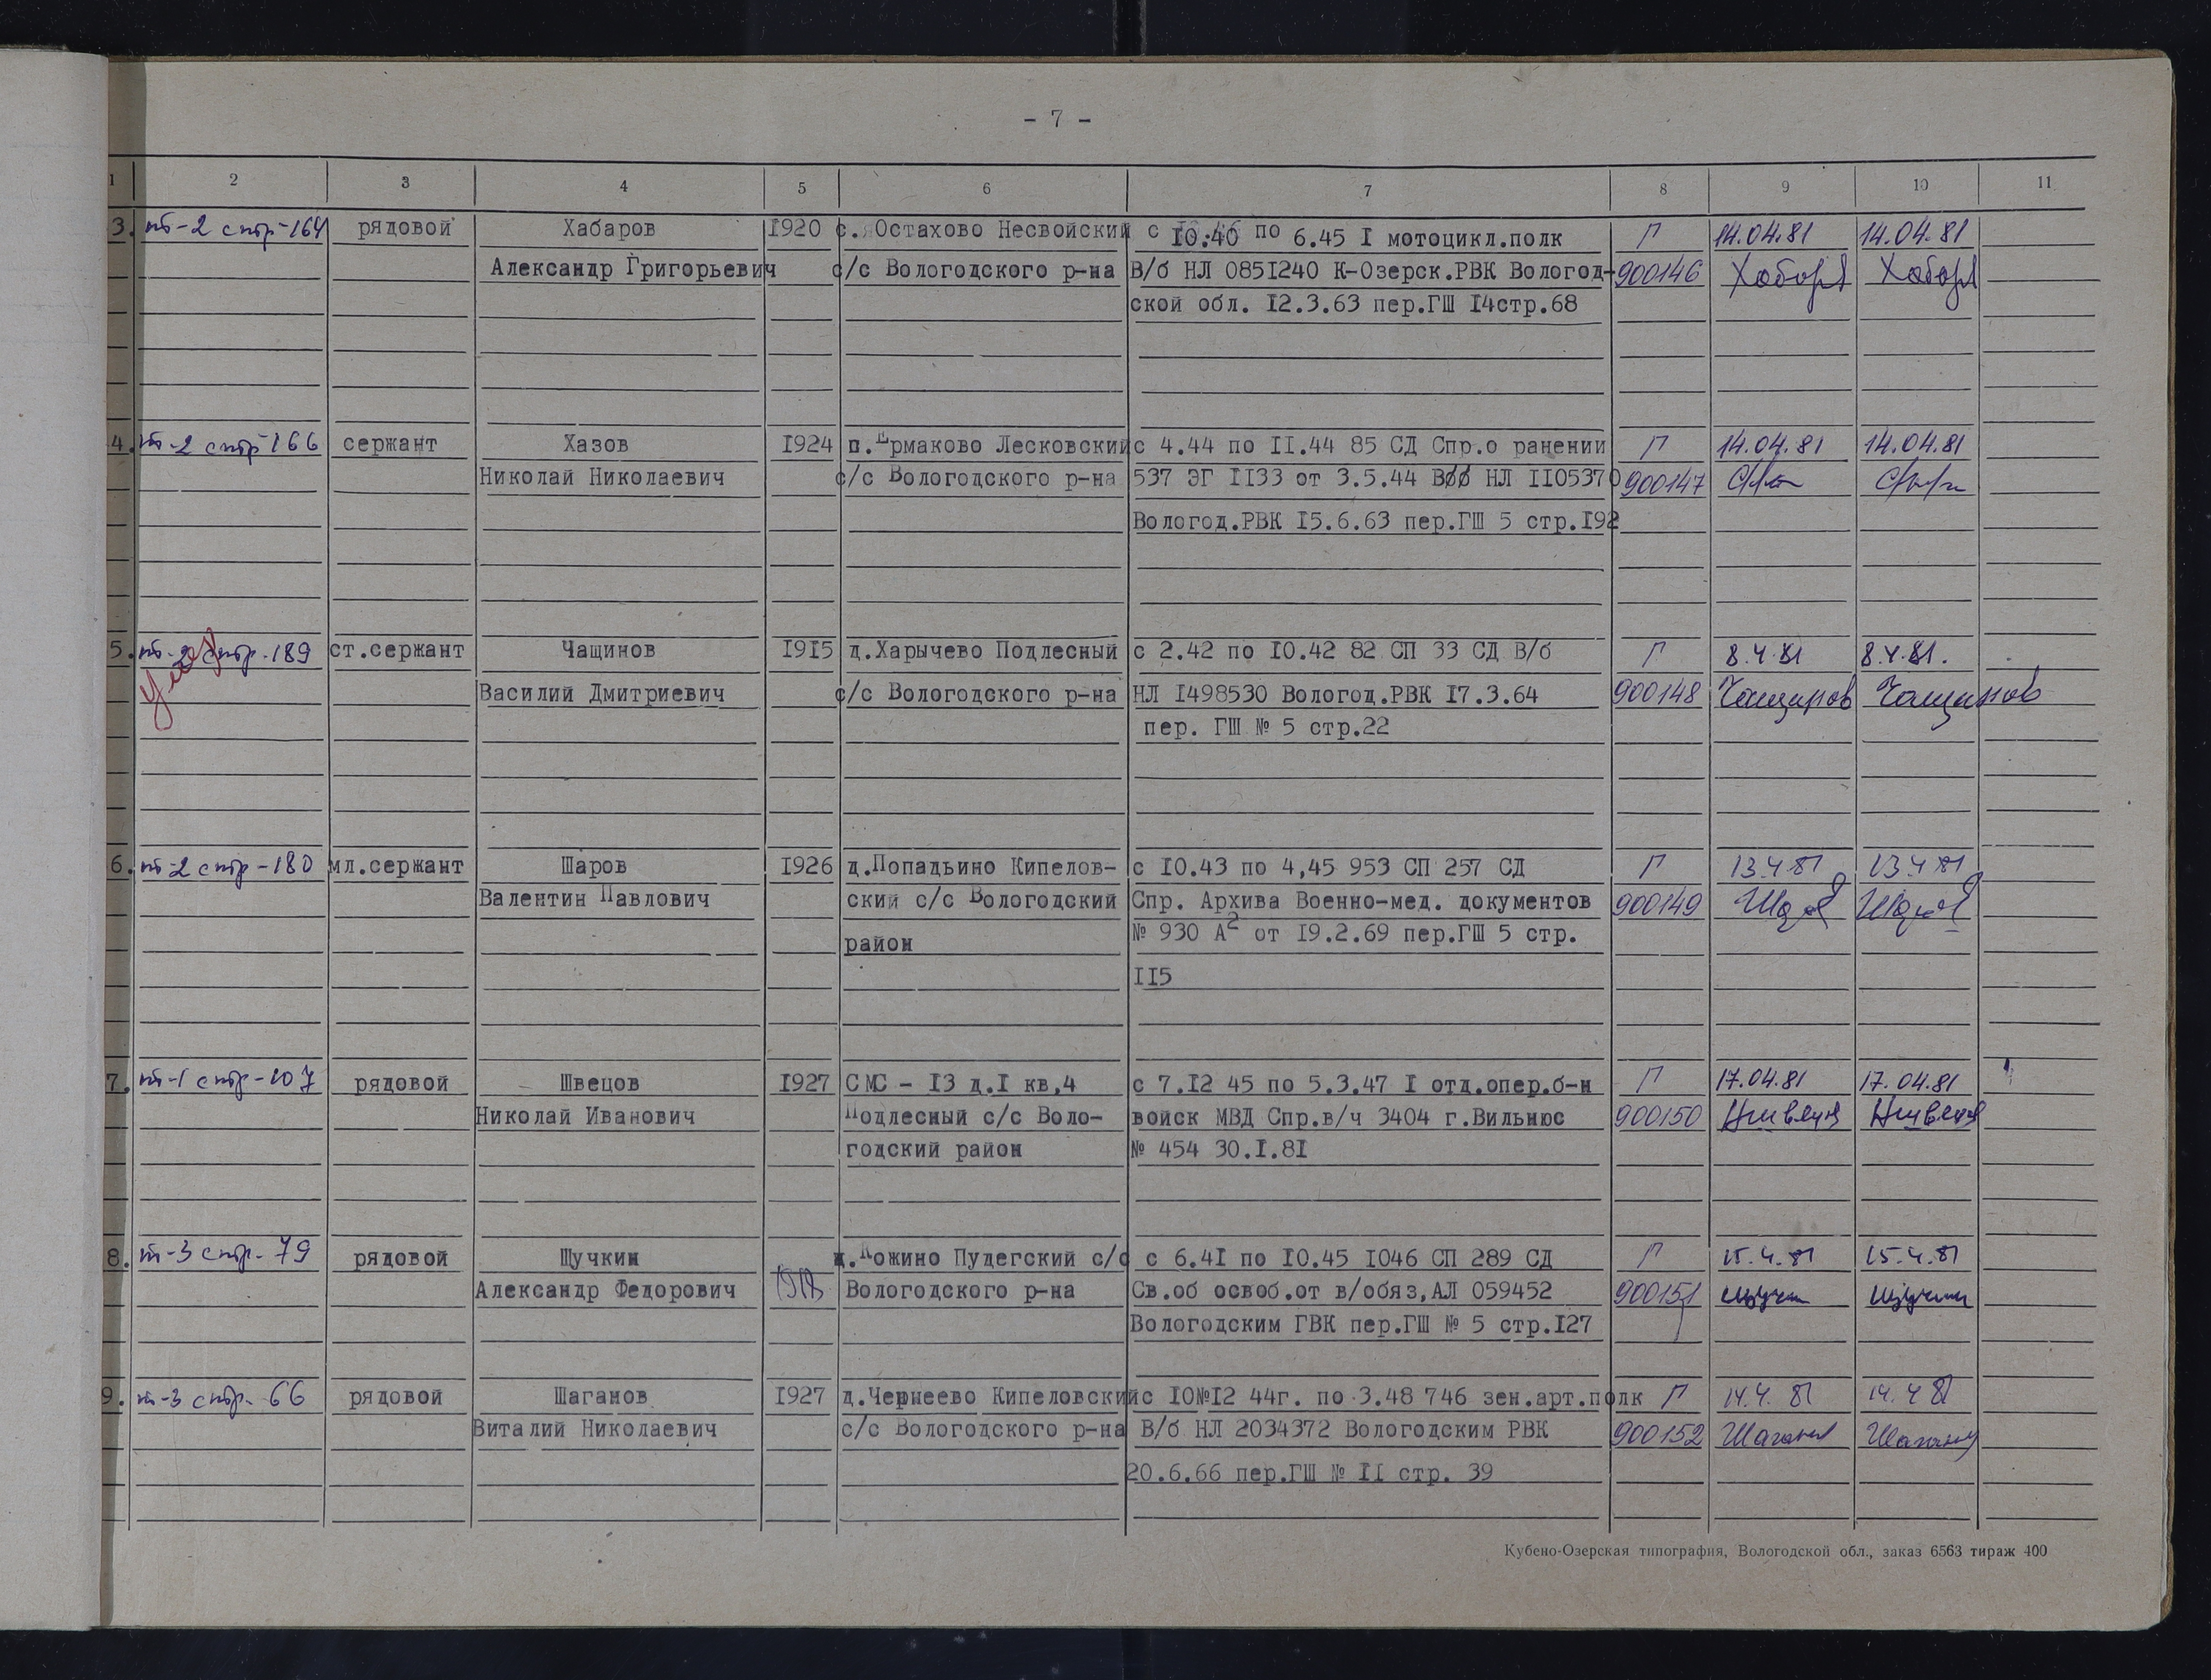 - 7 -
1 2 3 4 5 6 7 8 9 10 11
3. т-2 стр-164 рядовой Хабаров 1920 с. Остахово Несвойский с 10.40 по 6.45 I мотоцикл.полк Г 14.04.81 14.04.81
Александр Григорьевич с/с Вологодского р-на В/б НЛ 0851240 К-Озерск.РВК Вологод- 900146
ской обл. 12.3.63 пер.ГШ 14стр.68
4. т-2 стр 166 сержант Хазов 1924 п.Ермаково Лесковский с 4.44 по II.44 85 СД Спр.о ранении Г 14.04.81 14.04.81
Николай Николаевич с/с Вологодского р-на 537 ЭГ II33 от 3.5.44 НЛ II05370 900147
Вологод.РВК 15.6.63 пер.ГШ 5 стр.192
5. т-2 стр.189 ст.сержант Чащинов 1915 д.Харычево Подлесный с 2.42 по 10.42 82 СП 33 СД В/б Г 8.4.81 8.4.81.
Василий Дмитриевич с/с Вологодского р-на НЛ 1498530 Вологод.РВК 17.3.64 900148 Чащинов Чащинов
пер. ГШ № 5 стр.22
6. т-2 стр-180 мл.сержант Шаров 1926 д.Попадьино Кипелов- с 10.43 по 4,45 953 СП 257 СД Г 13.4.81 13.4.81
Валентин Павлович ский с/с Вологодский Спр. Архива Военно-мед. документов 900149
район № 930 А2 от 19.2.69 пер.ГШ 5 стр.
II5
7. т-1 стр-107 рядовой Швецов 1927 СМС - 13 д.I кв,4 с 7.12 45 по 5.3.47 I отд.опер.б-н Г 17.04.81 17.04.81
Николай Иванович Подлесный с/с Воло- войск МВД Спр.в/ч 3404 г.Вильнюс 900150
годский район № 454 30.I.8I
8. т-3 стр. 79 рядовой Щучкин д.Кожино Пудегский с/с с 6.41 по 10.45 1046 СП 289 СД Г 15.4.81 15.4.81
Александр Федорович Вологодского р-на Св.об освоб.от в/обяз,АЛ 059452 900151
Вологодским ГВК пер.ГШ № 5 стр.127
9. т-3 стр. 66 рядовой Шаганов 1927 д.Чернеево Кипеловский с 10№12 44г. по 3.48 746 зен.арт.полк Г 14.4.81 14.4 81
Виталий Николаевич с/с Вологодского р-на В/б НЛ 2034372 Вологодским РВК 900152
20.6.66 пер.ГШ № II стр. 39
Кубено-Озерская типография, Вологодской обл., заказ 6563 тираж 400